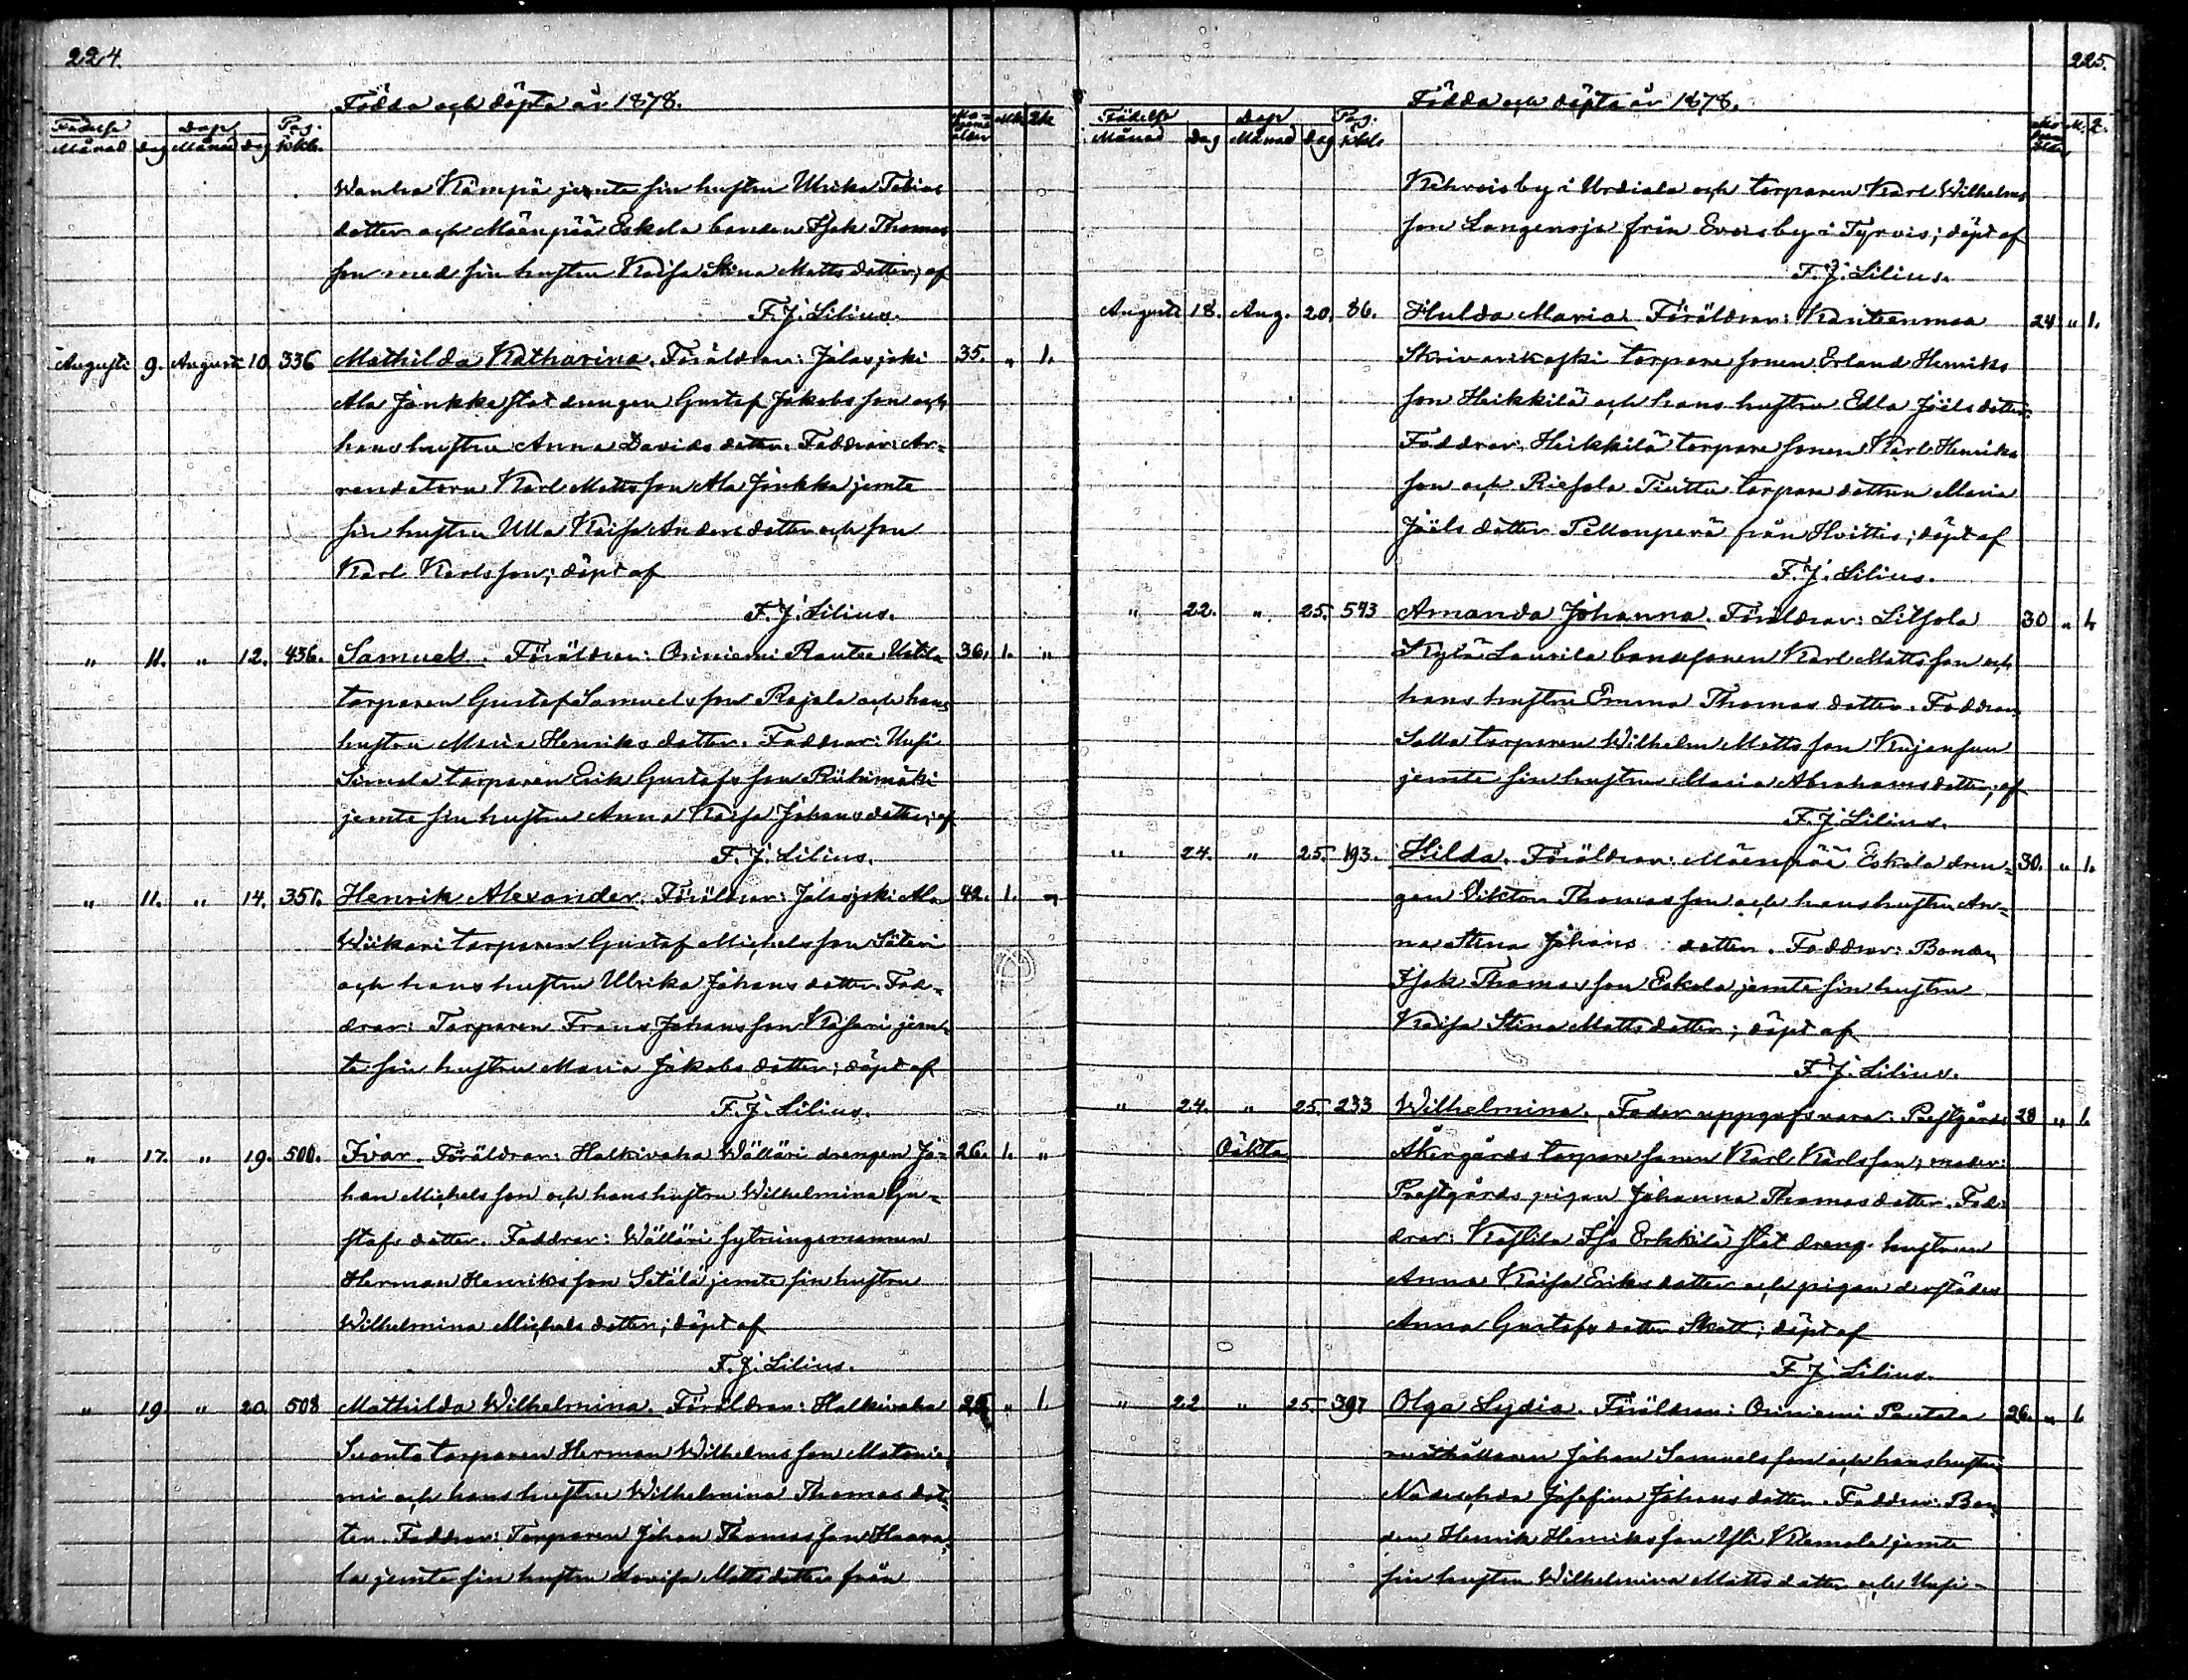 224.
Födda och döpta år 1878.
Födelse Dop Pag.
Månad dag Månad dag i kkb. M.k. Q.k
Wanha Kämpä jemte sin hustru Ulrika Tobias
dotter och Mäenpää Eskola bonden Isak Thomas
son med sin hustru Kaisa Stina Matts dotter; af
F. J. Lilius.
Augusti 9. Augusti 10. 336 Mathilda Katharina. Föräldrar: Jalasjoki 35. „ 1.
Ala Jänkka statdrengen Gustaf Jakobsson och
hans hustru Anna Davids dotter. Faddrar: Ar-
rendatorn Karl Mattsson Ala Jänkka jemte
sin hustru Ulla Kaisa Anders dotter och son
Karl Karlsson; döpt af
F. J. Lilius.
„ 11. „ 12. 436. Samuel. Föräldrar: Oriniemi Rautee Uotila 36. 1. „
torparen Gustaf Samuelsson Rajala och hans
hustru Maria Henriks dotter. Faddrar: Uusi
Simola torparen Erik Gustafsson Riihimäki
jemte sin hustru Anna Kaisa Johans dotter; af
F. J. Lilius.
„ 11. „ 14. 351. Henrik Alexander. Föräldrar: Jalasjoki Ala 42. 1. „
Wiikari torparen Gustaf Michelsson Säteri
och hans hustru Ulrika Johans dotter. Fad-
drar: Torparen Frans Johansson Kasari jem-
te sin hustru Maria Jakobs dotter; döpt af
F. J. Lilius.
„ 17. „ 19. 500. Ivar. Föräldrar: Halkivaha Wälläri drengen Jo- 26. 1. „
han Michelsson och hans hustru Wilhelmina Gu-
stafs dotter. Faddrar: Wälläri sytningsmannen
Herman Henriksson Setälä jemte sin hustru
Wilhelmina Michels dotter; döpt af
F. J. Lilius.
„ 19 „ 20. 508 Mathilda Wilhelmina. Föräldrar: Halkivaha „ 1.
Suonto torparen Herman Wilhelmsson Matonie-
mi och hans hustru Wilhelmina Thomas dot-
ter. Faddrar: Torparen Johan Thomasson Haava-
la jemte sin hustru Lovisa Matts dotter från
225.
Födda och döpta år 1878.
Födelse Dop Pag.
Månad Dag Månad dag i kkb M. Q.
by i Urdiala och torparen Karl Wilhelms
son Langensjo från by i Tyrvis; döpt af
F. J. Lilius.
Augusti 18. Aug. 20. 86. Hulda Maria. Föräldrar: Kanteenmaa 24 „ 1.
torpare sonen Erland Henriks
son Heikkilä och hans hustru Edla Joels dotter.
Faddrar: Heikkilä torpare sonen Karl Henriks
son och Riesola torpare dottren Maria
Joels dotter Pellonperä från Hvittis; döpt af
F. J. Lilius.
„ 22. „ 25. 543 Amanda Johanna. Föräldrar: Litsola 30 „ 1.
Kylä Laurila bondsonen Karl Mattsson och
hans hustru Emma Thomas dotter. Faddrar:
Salla torparen Wilhelm Mattsson Kujansuu
jemte sin hustru Maria Abrahams dotter; af
F. J. Lilius.
„ 24. „ 25. 193. Hilda. Föräldrar: Mäenpää Eskola dren- 30. „ 1.
gen Viktor Thomasson och hans hustru An-
na Stina Johans dotter. Faddrar: Bonden
Isak Thomasson Eskola jemte sin hustru
Kaisa Stina Matts dotter; döpt af
F. J. Lilius.
„ 24. „ 25. 233 Wilhelmina. Fader uppgafs vara: Prestgårds 28 „ 1.
Oäkta. Åkergårds torpare sonen Karl Karlsson; moder:
Prestgårds pigan Johanna Thomas dotter. Fad-
drar: Iso Erkkilä stat dreng hustrun
Anna Kaisa Eriks dotter och pigan derstädes
Anna Gustafs dotter Skott; döpt af
F. J. Lilius.
„ 22 „ 25. 397 Olga Lydia. Föräldrar: Oriniemi Pentala 26. „ 1.
rusthållaren Johan Samuelsson och hans hustru
Nadeschda Josefina Johans dotter. Faddrar: Bon-
den Henrik Henriksson Yli Klemola jemte
sin hustru Wilhelmina Matts dotter och Uusi-